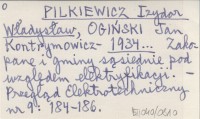 PILKIEWICZ Izydor
Władysław, OGIŃSKI Jan
Kontrymowicz - 1934... Zako-
pane i gminy sąsiednie pod
względem elektryfikacji. -
Przegląd Elektrotechniczny
nr 9: 184-186.